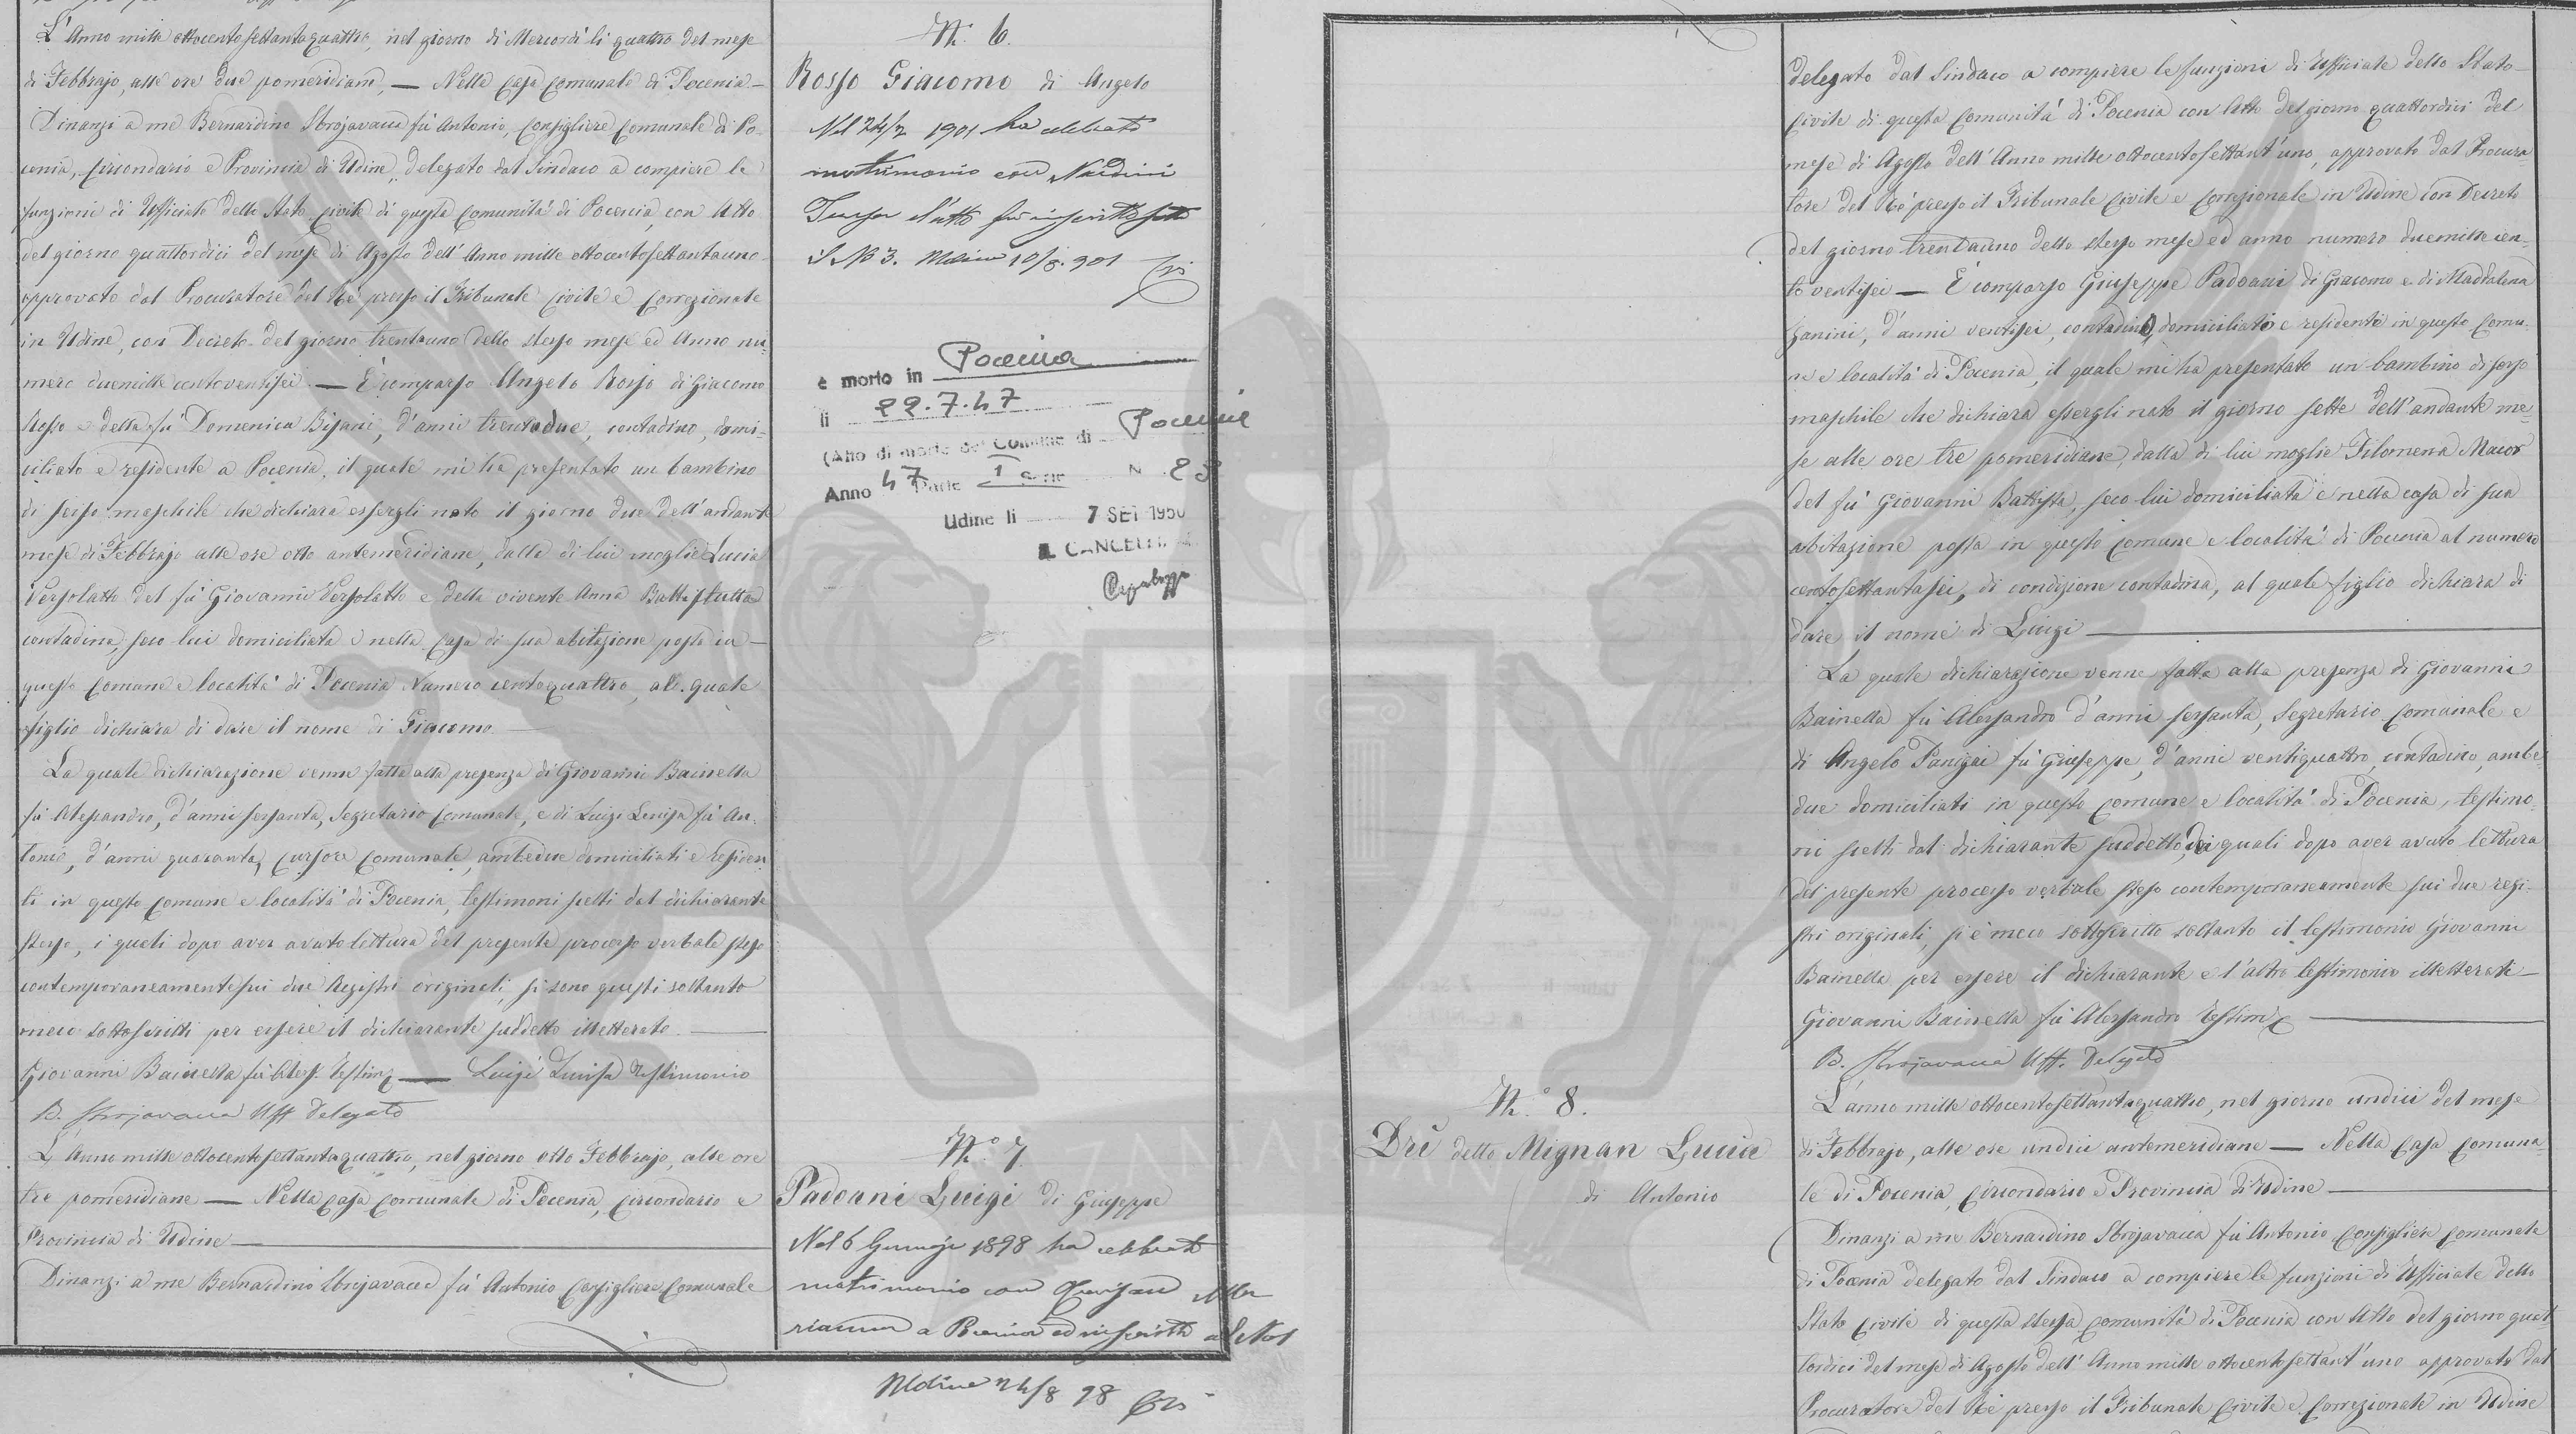 L'Anno mille ottocento settantaquattro, nel giorno di Mercordì li quattro del mese
di Febbrajo, alle ore due pomeridiane, — Nella Casa Comunale di Pocenia —
Dinanzi a me Bernardino Sbrojavacca fù Antonio, Consigliere Comunale di Po-
cenia, Circondario e Provincia di Udine, delegato dal Sindaco a compiere le
funzioni di Ufficiale dello Stato Civile di questa Comunità di Pocenia, con Atto
del giorno quattordici del mese di Agosto dell'Anno mille ottocentosettantauno
approvato dal Procuratore del Rè presso il Tribunale Civile e Correzionale
in Udine, con Decreto del giorno trentauno dello stesso mese ed Anno nu-
mero duemille centoventisei — È comparso Angelo Rosso di Giacomo
Rosso e della fù Domenica Bisani, d'anni trentadue, contadino, domi-
ciliato e residente a Pocenia, il quale mi ha presentato un bambino
di sesso maschile che dichiara essergli nato il giorno due dell'andante
mese di Febbrajo alle ore otto antemeridiane, dalla di lui moglie Lucia
Versolatto del fù Giovanni Versolatto e della vivente Anna Battistutta
contadina, seco lui domiciliata e nella Casa di sua abitazione posta in
questo Comune e località di Pocenia Numero centoquattro, al quale
figlio dichiara di dare il nome di Giacomo.
La quale dichiarazione venne fatta alla presenza di Giovanni Bainella
fù Alessandro, d'anni sessanta, Segretario Comunale, e di Luigi fù An-
tonio, d'anni quaranta, Cursore Comunale, ambedue domiciliati e residen-
ti in questo Comune e località di Pocenia, testimoni scelti dal dichiarante
stesso, i quali dopo aver avuto lettura del presente processo verbale steso
contemporaneamente sui due Registri originali, si sono questi soltanto
meco sottoscritti per essere il dichiarante suddetto illetterato.
Giovanni Bainella fù Aless. Testim. — Luigi Testimonio
B. Sbrojavacca Uff. Delegato
L'Anno mille ottocentosettantaquattro, nel giorno otto Febbrajo, alle ore
tre pomeridiane — Nella Casa Comunale di Pocenia, Circondario e
Provincia di Udine —
Dinanzi a me Bernardino Sbrojavacca fù Antonio Consigliere Comunale
N. 6.
Rosso Giacomo di Angelo
Nel 24/2 1901 ha celebrato
matrimonio con Nardini
Teresa l'atto fu inscritto sotto
il N 3. Udine 10/8.901
è morto in Pocenia
li 22.7.47
(Atto di morte del Comune di Pocenia
Anno 47 Parte 1 Serie N. 23
Udine li 7 SET 1950
IL CANCELLIERE
N.° 7.
Padoani Luigi di Giuseppe
Nel 6 Gennajo 1898 ha celebrato
matrimonio con Ma
rianna a Pocenia ed inscritto al N 1
Udine 24/8 98
delegato dal Sindaco a compiere le funzioni di Ufficiale dello Stato
Civile di questa Comunità di Pocenia con Atto del giorno quattordici del
mese di Agosto dell'Anno mille ottocentosettant'uno, approvato dal Procura-
tore del Rè presso il Tribunale Civile e Correzionale in Udine con Decreto
del giorno trentauno dello stesso mese ed anno numero duemille cen-
to ventisei — È comparso Giuseppe Padoani di Giacomo e di Maddalena
Zanini, d'anni ventisei, contadino, domiciliato e residente in questo Comu-
ne e località di Pocenia, il quale mi ha presentato un bambino di sesso
maschile che dichiara essergli nato il giorno sette dell'andante me-
se alle ore tre pomeridiane, dalla di lui moglie Filomena Macor
del fù Giovanni Battista, seco lui domiciliata e nella casa di sua
abitazione posta in questo Comune e località di Pocenia al numero
centosettantasei, di condizione contadina, al quale figlio dichiara di
dare il nome di Luigi —
La quale dichiarazione venne fatta alla presenza di Giovanni
Bainella fù Alessandro d'anni sessanta, Segretario Comunale e
di Angelo Panigai fù Giuseppe, d'anni ventiquattro, contadino, ambe-
due domiciliati in questo Comune e località di Pocenia, testimo-
ni scelti dal dichiarante suddetto, dei quali dopo aver avuto lettura
del presente processo verbale steso contemporaneamente sui due regi-
stri originali, si è meco sottoscritto soltanto il testimonio Giovanni
Bainella per essere il dichiarante e l'altro testimonio illetterati —
Giovanni Bainella fù Alessandro Testim.
B. Sbrojavacca Uff. Delegato
N.° 8.
Dri detto Mignan Lucia
di Antonio
L'anno mille ottocentosettantaquattro, nel giorno undici del mese
di Febbrajo, alle ore undici antemeridiane — Nella Casa Comuna-
le di Pocenia, Circondario e Provincia di Udine —
Dinanzi a me Bernardino Sbrojavacca fù Antonio Consigliere Comunale
di Pocenia delegato dal Sindaco a compiere le funzioni di Ufficiale dello
Stato Civile di questa stessa Comunità di Pocenia con Atto del giorno quat-
tordici del mese di Agosto dell'Anno mille ottocentosettant'uno approvato dal
Procuratore del Rè presso il Tribunale Civile e Correzionale in Udine